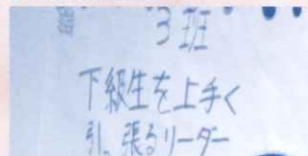 3班
下級生を上手く
引っ張るリーダー